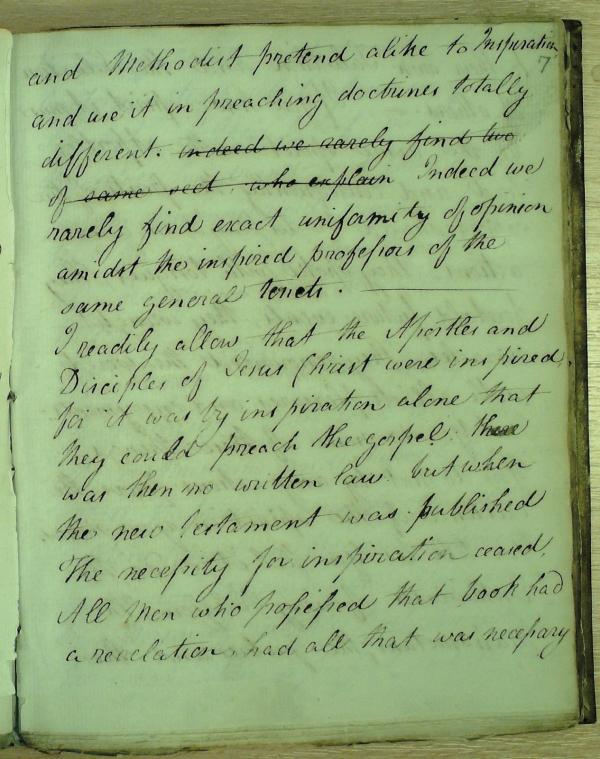 and Methodist pretend alike to Inspiration
7
and use it in preaching doctrines totally
different. indeed we rarely find two
of same sect who explain Indeed we
rarely find exact uniformity of opinion
amidst the inspired professors of the
same general tenets.
I readily allow that the Apostles and
Disciples of Jesus Christ were inspired.
for it was by inspiration alone that
they could preach the gospel. there
was then no written law. but when
the new testament was published
The necessity for inspiration ceased.
All men who possessed that book had
a revelation, had all that was necessary